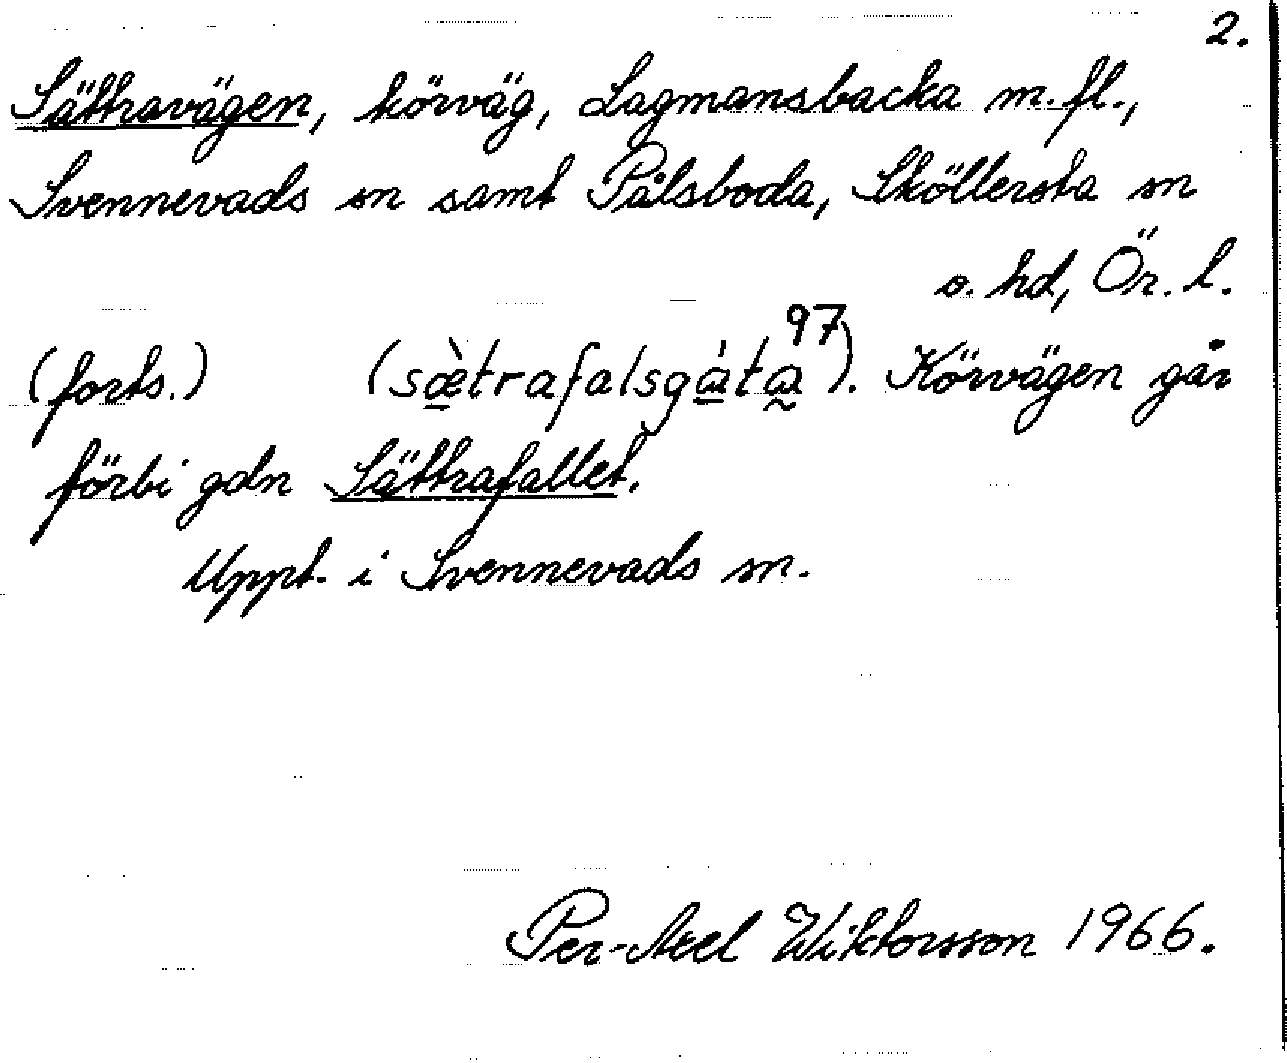 2.
Sättravägen, körväg, Lagmansbacka m.fl.,
Svennevads sn samt Pålsboda, Sköllersta sn
o. hd, Ör. l.
(forts.) (sæ̀trafalsgáta 97). Körvägen går
förbi gdn Sättrafallet.
Uppt. i Svennevads sn.
Per-Axel Wiktorsson 1966.